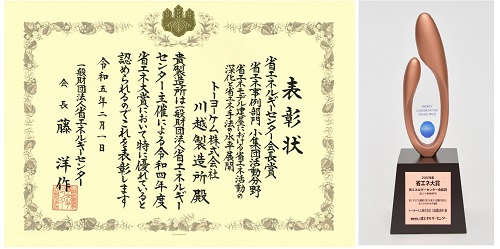 表彰状
省エネルギーセンター会長賞
省エネ事例部門 小集団活動分野
省エネモデル建屋における省エネ活動の
深化と省エネ手法の水平展開
トーヨーケム株式会社
川越製造所 殿
貴製造所は一般財団法人省エネルギー
センター主催による令和四年度
省エネ大賞において特に優れていると
認められるのでこれを表彰します
令和五年二月一日
一般財団法人省エネルギーセンター
会長 藤 洋作
ENERGY
CONSERVATION
GRAND PRIZE
2022年度
省エネ大賞
省エネルギーセンター会長賞